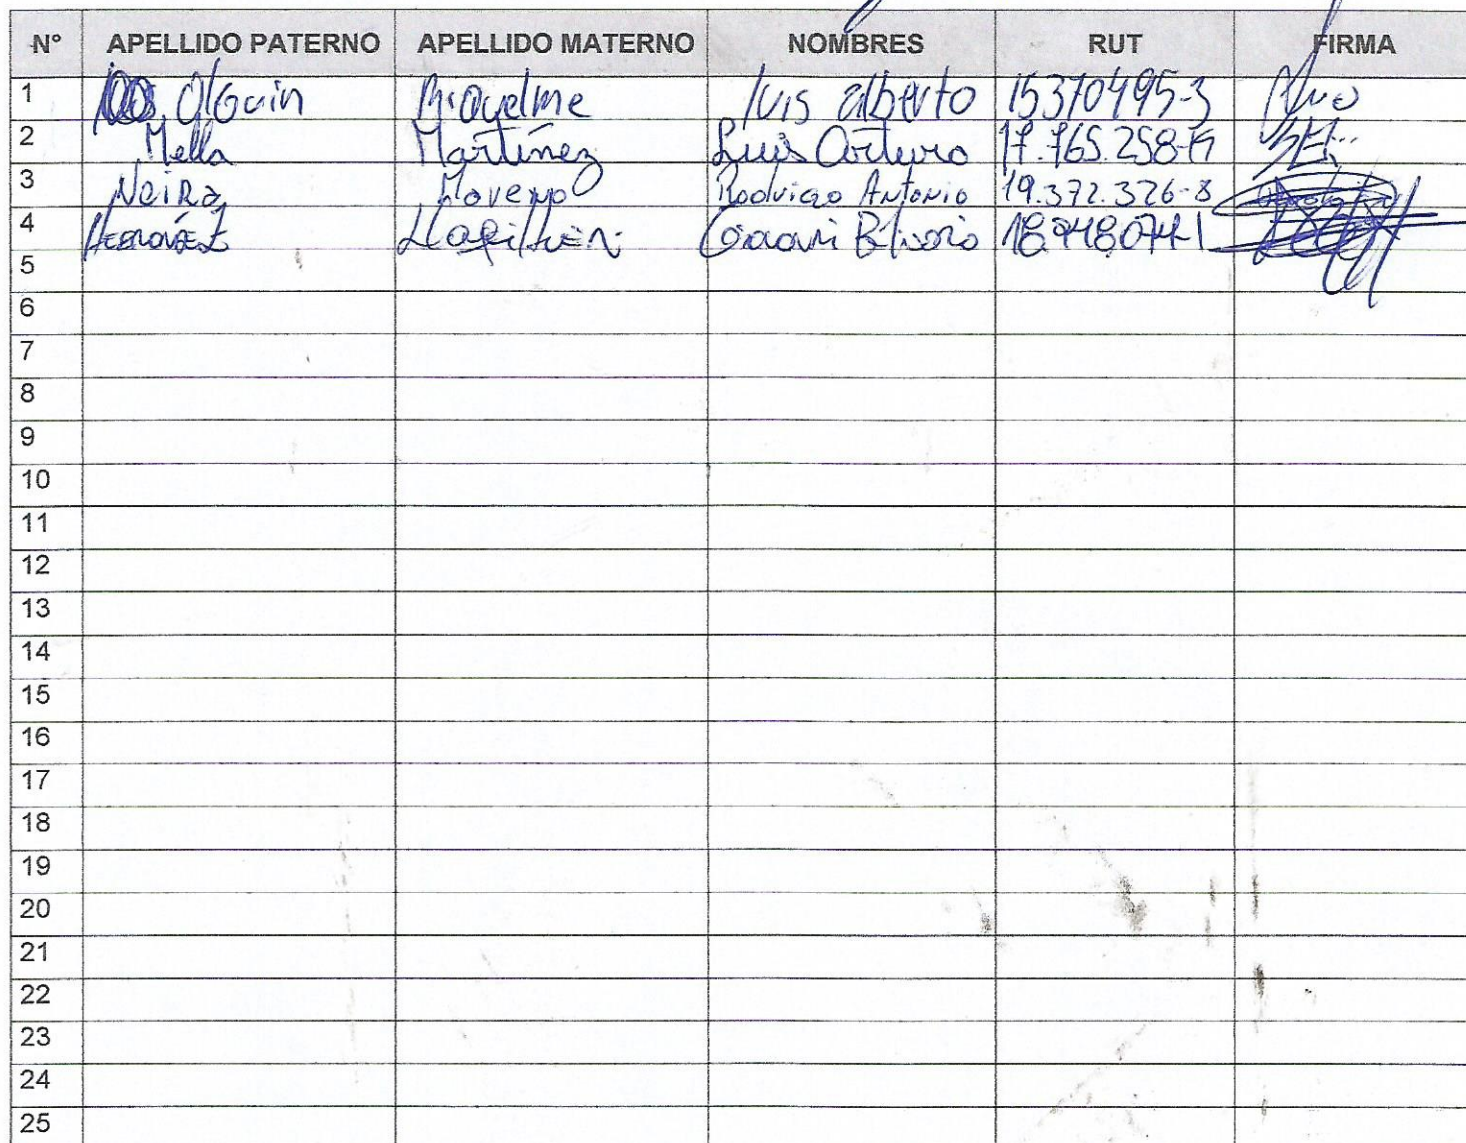 N° APELLIDO PATERNO APELLIDO MATERNO NOMBRES RUT FIRMA
1 Olguin Riquelme luis alberto 15370495-3
2 Mella Martínez Luis Arturo 17.765.258-
3 Neira Moreno Rodrigo Antonio 19.372.326-8
4 18948074-1
5
6
7
8
9
10
11
12
13
14
15
16
17
18
19
20
21
22
23
24
25